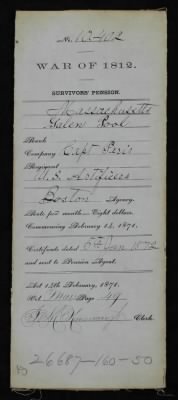 No.
WAR OF 1812.
SURVIVORS' PENSION.
Massachusetts
Galen Pool
Rank
Company Capt
Regiment U.S. Artificers
Boston Agency.
Rate per month—Eight dollars.
Commencing February 14, 1871.
Certificate dated 5th Jan 1872
and sent to Pension Agent,
Act 14th February, 1871.
Vol. Page 49
Clerk.
26687-160-50